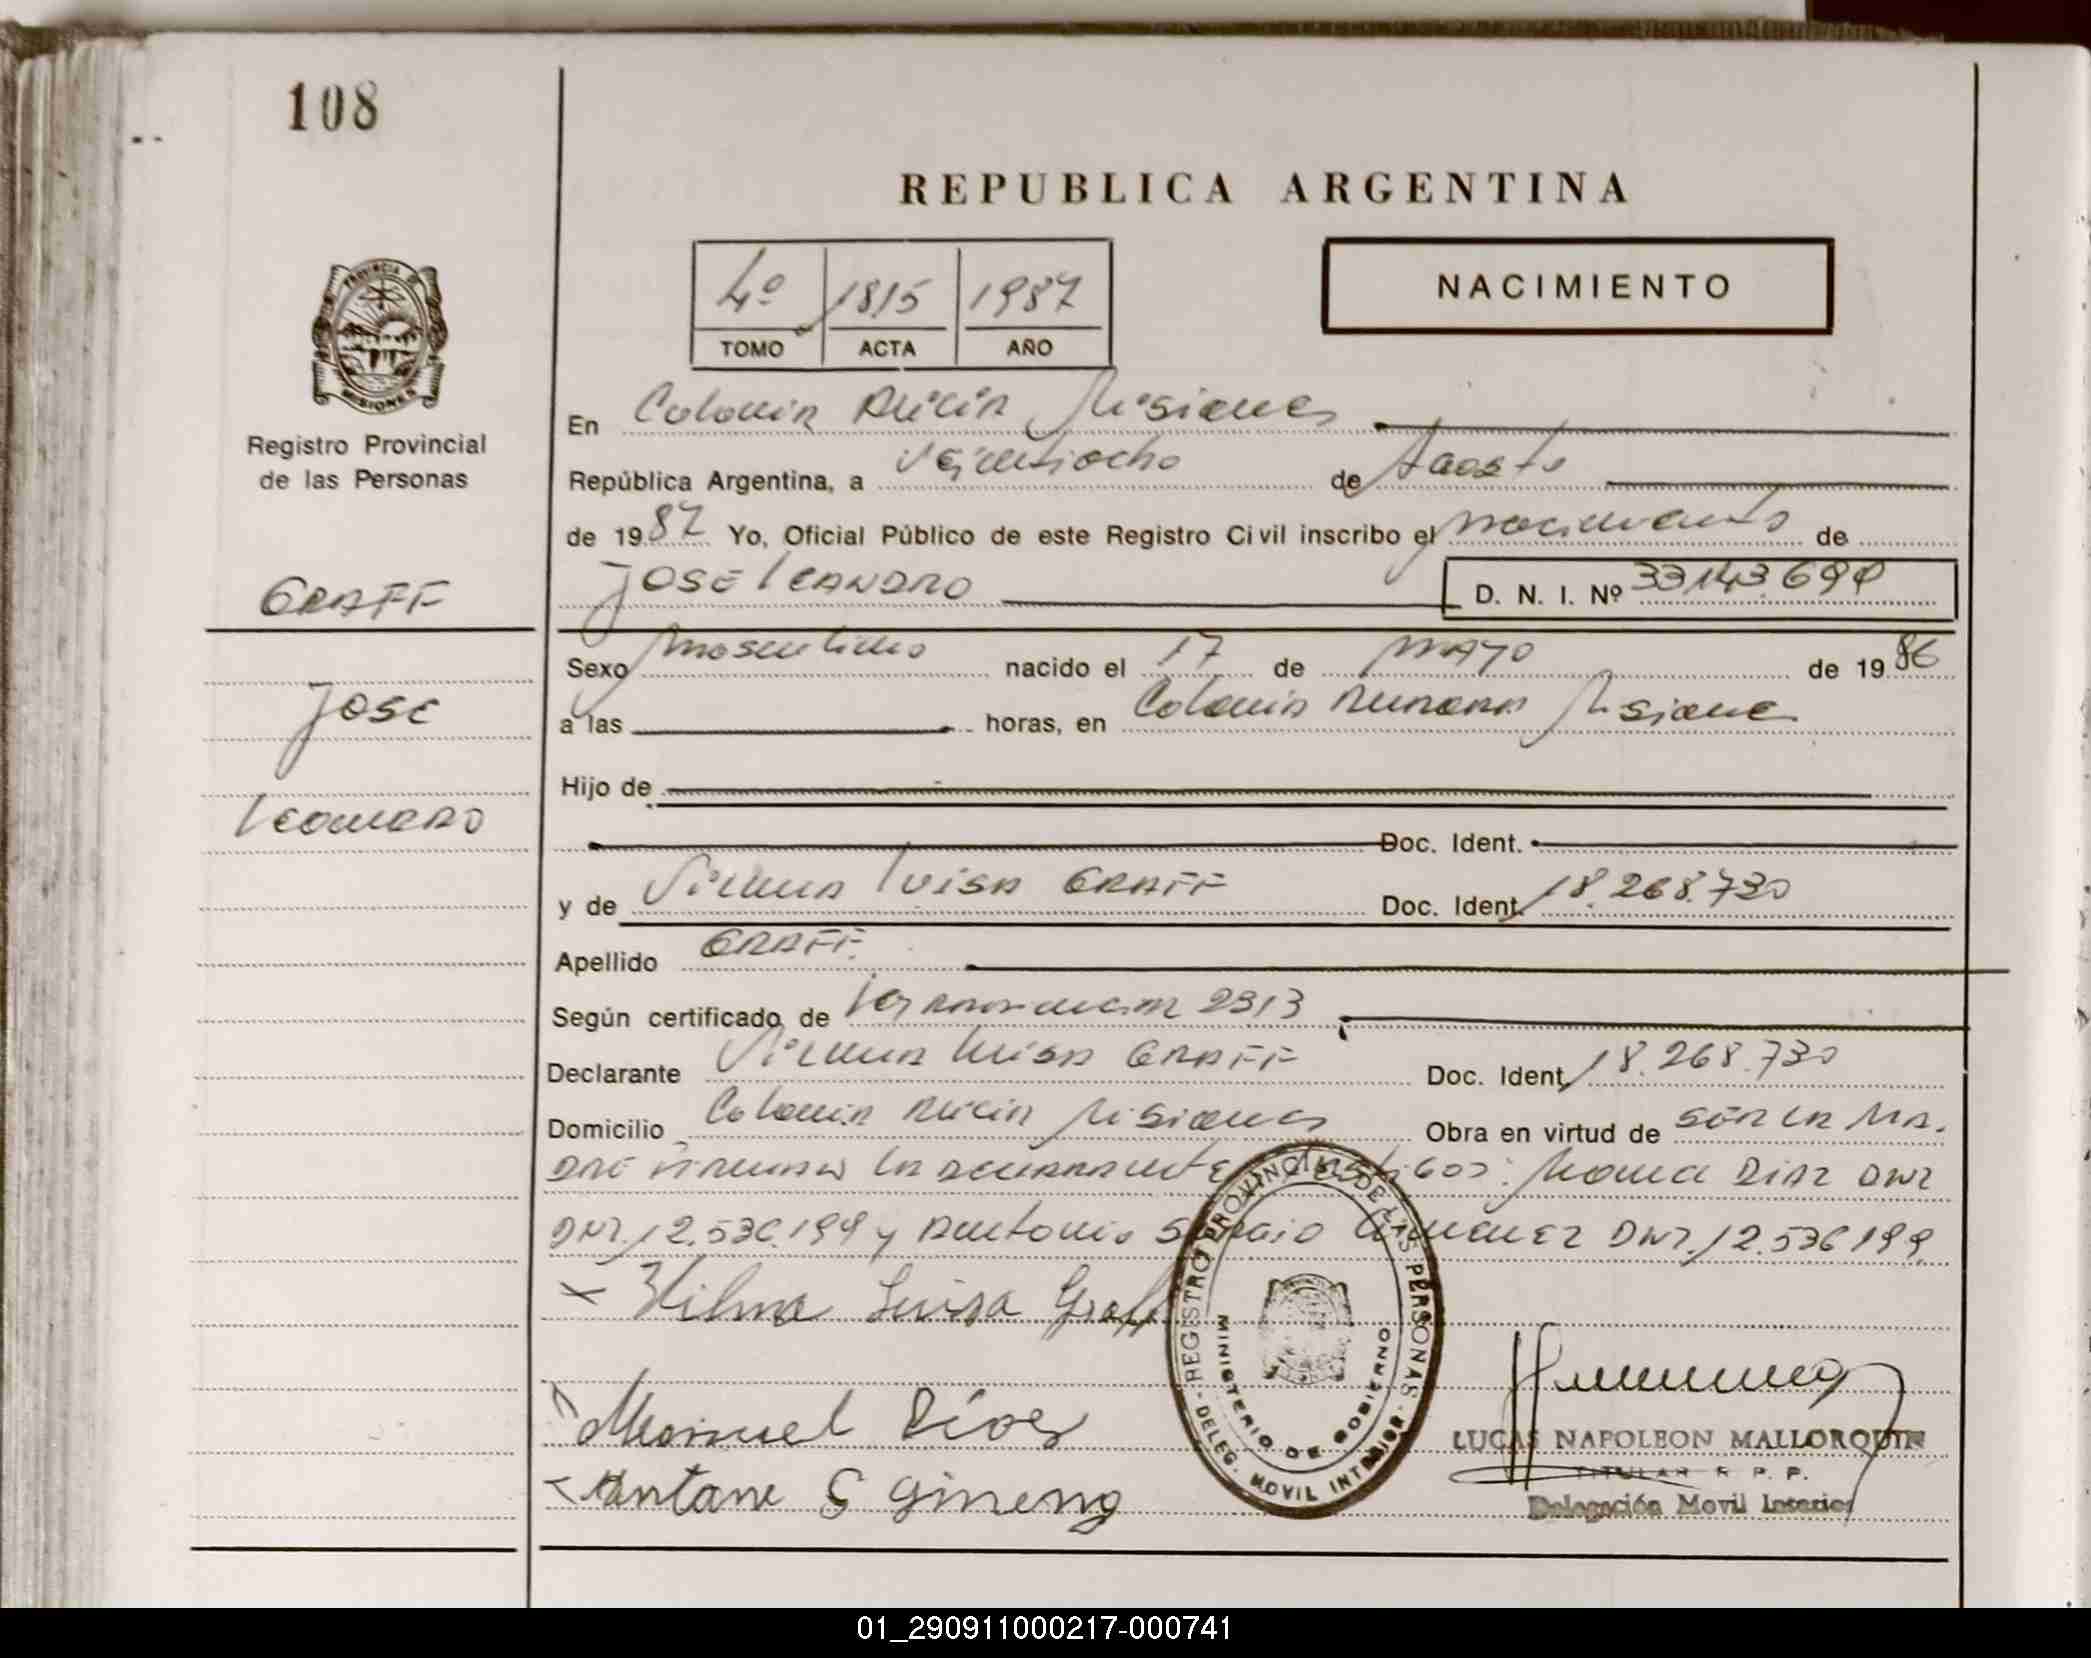 108
REPUBLICA ARGENTINA
4º 1815 1987
TOMO ACTA AÑO
NACIMIENTO
PROVINCIA DE MISIONES
Registro Provincial
de las Personas
En Colonia Alicia Misiones
República Argentina, a Veintiocho de Agosto
de 1987 Yo, Oficial Público de este Registro Civil inscribo el nacimiento de
JOSE LEANDRO
D. N. I. Nº 33.143.699
GRAFF
JOSE
Leandro
Sexo Masculino nacido el 17 de MAYO de 1986
a las horas, en Colonia Aurora Misiones
Hijo de
Doc. Ident.
y de Vilma Luisa GRAFF Doc. Ident. 18.268.730
Apellido GRAFF.
Según certificado de 2313
Declarante Vilma Luisa GRAFF Doc. Ident. 18.268.730
Domicilio Colonia Alicia Misiones Obra en virtud de SER LA MA.
DRE Firman LA DECLARANTE Testigos: DIAZ DNI
DNI. 12.536.199 y Antonio Sergio DNI. 12.536199
Hilma Luisa Graff
Manuel Díaz
S Gimeng
REGISTRO PROVINCIAL DE LAS PERSONAS
MINISTERIO DE GOBIERNO
DELEG. MOVIL INTERIOR
LUCAS NAPOLEON MALLORQUIN
TITULAR R. P. P.
Delegación Movil Interior
01_290911000217-000741